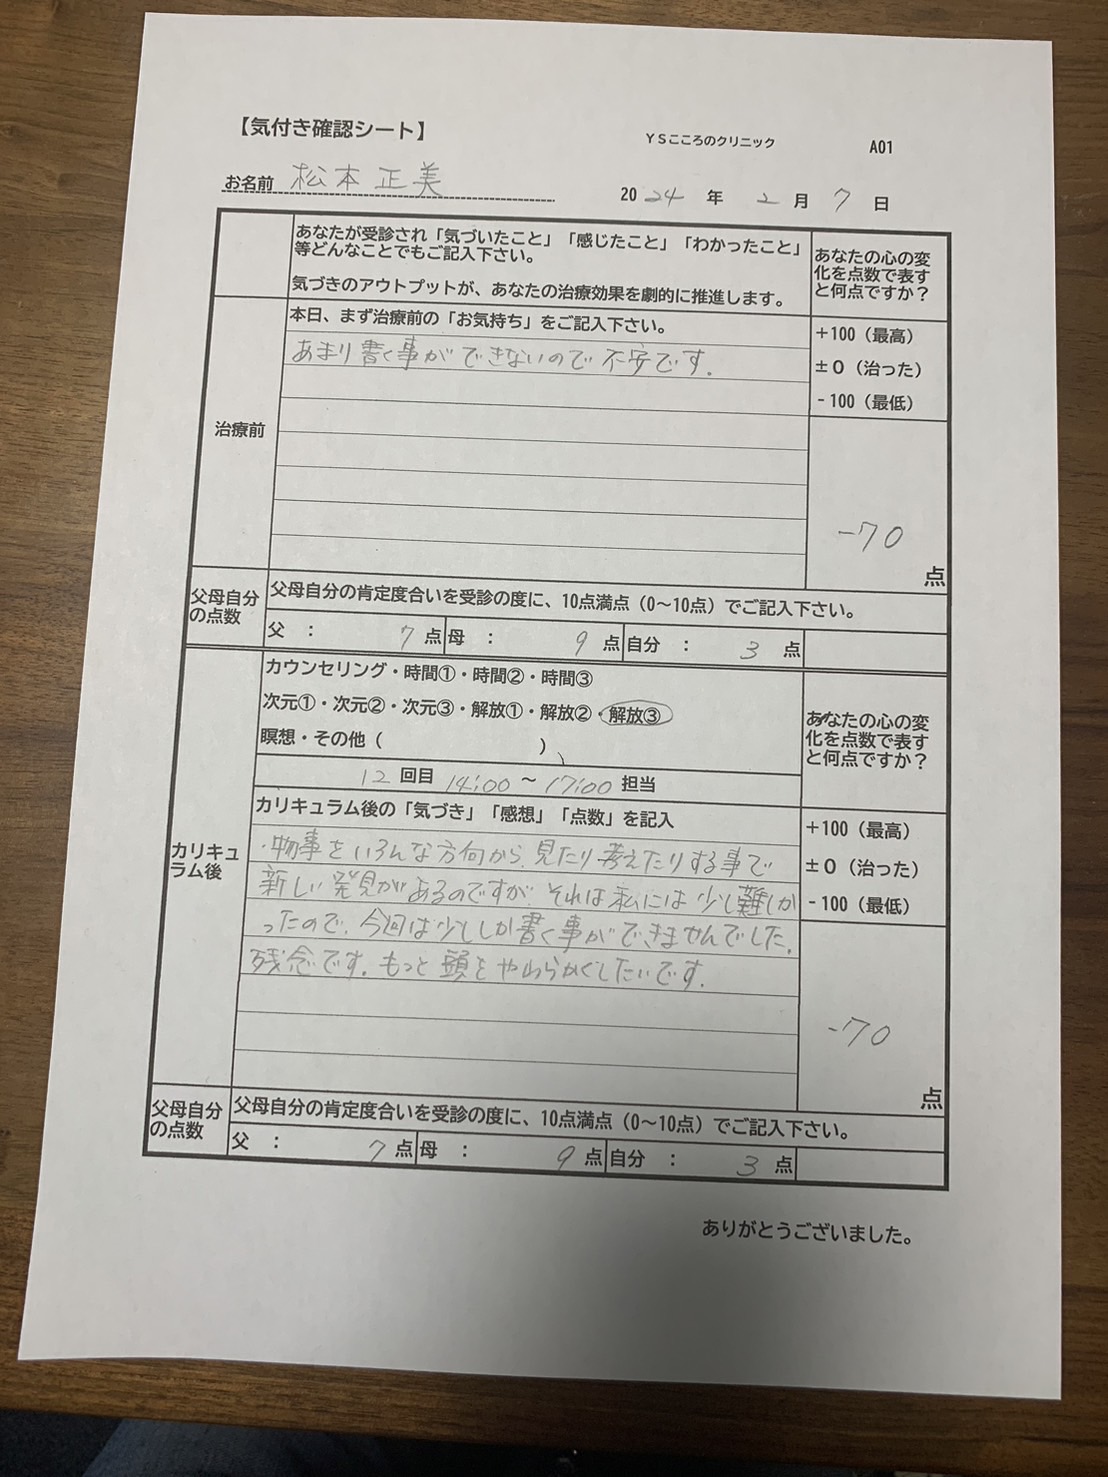 【気付き確認シート】
YSこころのクリニック
A01
お名前 松本正美
2024年2月7日
あなたが受診され「気づいたこと」「感じたこと」「わかったこと」
等どんなことでもご記入下さい。
気づきのアウトプットが、あなたの治療効果を劇的に推進します。
あなたの心の変
化を点数で表す
と何点ですか？
治療前
本日、まず治療前の「お気持ち」をご記入下さい。
あまり書く事ができないので不安です.
+100（最高）
±0（治った）
-100（最低）
-70
点
父母自分
の点数
父母自分の肯定度合いを受診の度に、10点満点（0〜10点）でご記入下さい。
父 ： 7 点 母 ： 9 点 自分 ： 3 点
カリキュ
ラム後
カウンセリング・時間①・時間②・時間③
次元①・次元②・次元③・解放①・解放②・解放③
瞑想・その他（ ）
12 回目 14:00 〜 17:00 担当
あなたの心の変
化を点数で表す
と何点ですか？
カリキュラム後の「気づき」「感想」「点数」を記入
・物事をいろんな方向から、見たり考えたりする事で
新しい発見があるのですが、それは私には少し難しか
ったので、今回は少ししか書く事ができませんでした.
残念です. もっと頭をやわらかくしたいです.
+100（最高）
±0（治った）
-100（最低）
-70
点
父母自分
の点数
父母自分の肯定度合いを受診の度に、10点満点（0〜10点）でご記入下さい。
父 ： 7 点 母 ： 9 点 自分 ： 3 点
ありがとうございました。